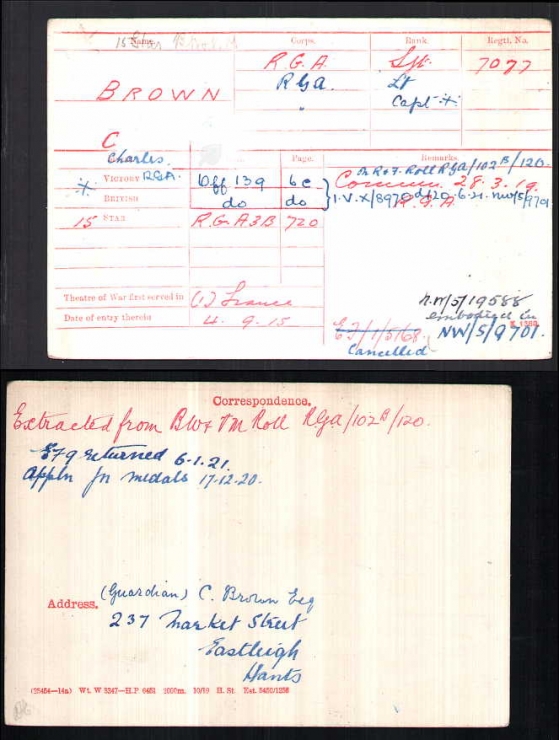 Name. Corps. Rank. Regtl. No.
15 Star
R.G.A. Sjt. 7077
BROWN RGA. Lt
" Capt +
C
Charles. Page. Remarks.
In R of F. Roll RGA/102B/120.
+ VICTORY RGA. Off 139 60 Commn. 28.3.19.
BRITISH do do I.V.X/8970 d/20.6.21. NW/5/9701
R.G.A
15 STAR R.G.A 3B 720
Theatre of War first served in (1) France
Date of entry therein 4.9.15
N.M/5/19588
embodied in
EF/1/5168. NW/5/9701.
Cancelled
K 1380.
Correspondence.
Extracted from BW & VM Roll RGA/102B/120.
EF9 returned 6.1.21.
Appln for medals 17.12.20.
(Guardian) C. Brown Esq
Address. 237 Market Street
Eastleigh
Hants
Wt. W 3347—H.P 10/19 H. St.